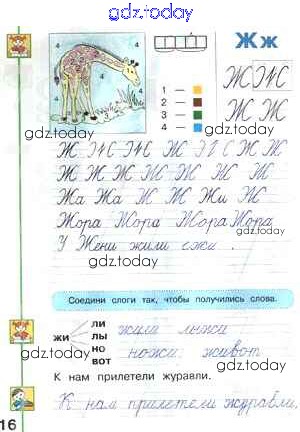 gdz.today
Ж ж
Ж Ж
1 —
2 —
3 —
4 —
4 4 4
Ж Ж
gdz.today
gdz.today
Ж Ж Ж Ж Ж Ж Ж
Ж Ж Ж Ж Ж Ж Ж
gdz.today
Жа Жа Ж Ж Жи Ж
Жора Жора Жора Жора
gdz.today
У Жени жили ежи.
gdz.today
Соедини слоги так, чтобы получились слова.
gdz.today
жи
ли
лы
но
вот
жили лыжи
ножи живот
gdz.today
gdz.today
К нам прилетели журавли.
К нам прилетели журавли.
gdz.today
16